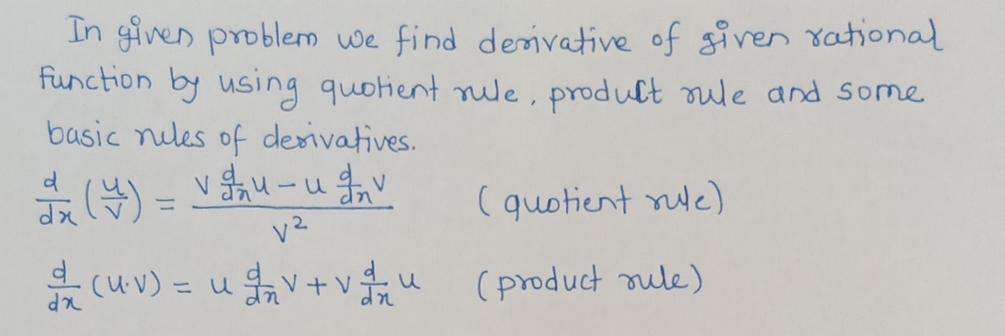 In given problem we find derivative of given rational
function by using quotient rule, product rule and some
basic rules of derivatives.
d/dx (u/v) = (v d/dx u - u d/dx v) / v² (quotient rule)
d/dx (u·v) = u d/dx v + v d/dx u (product rule)